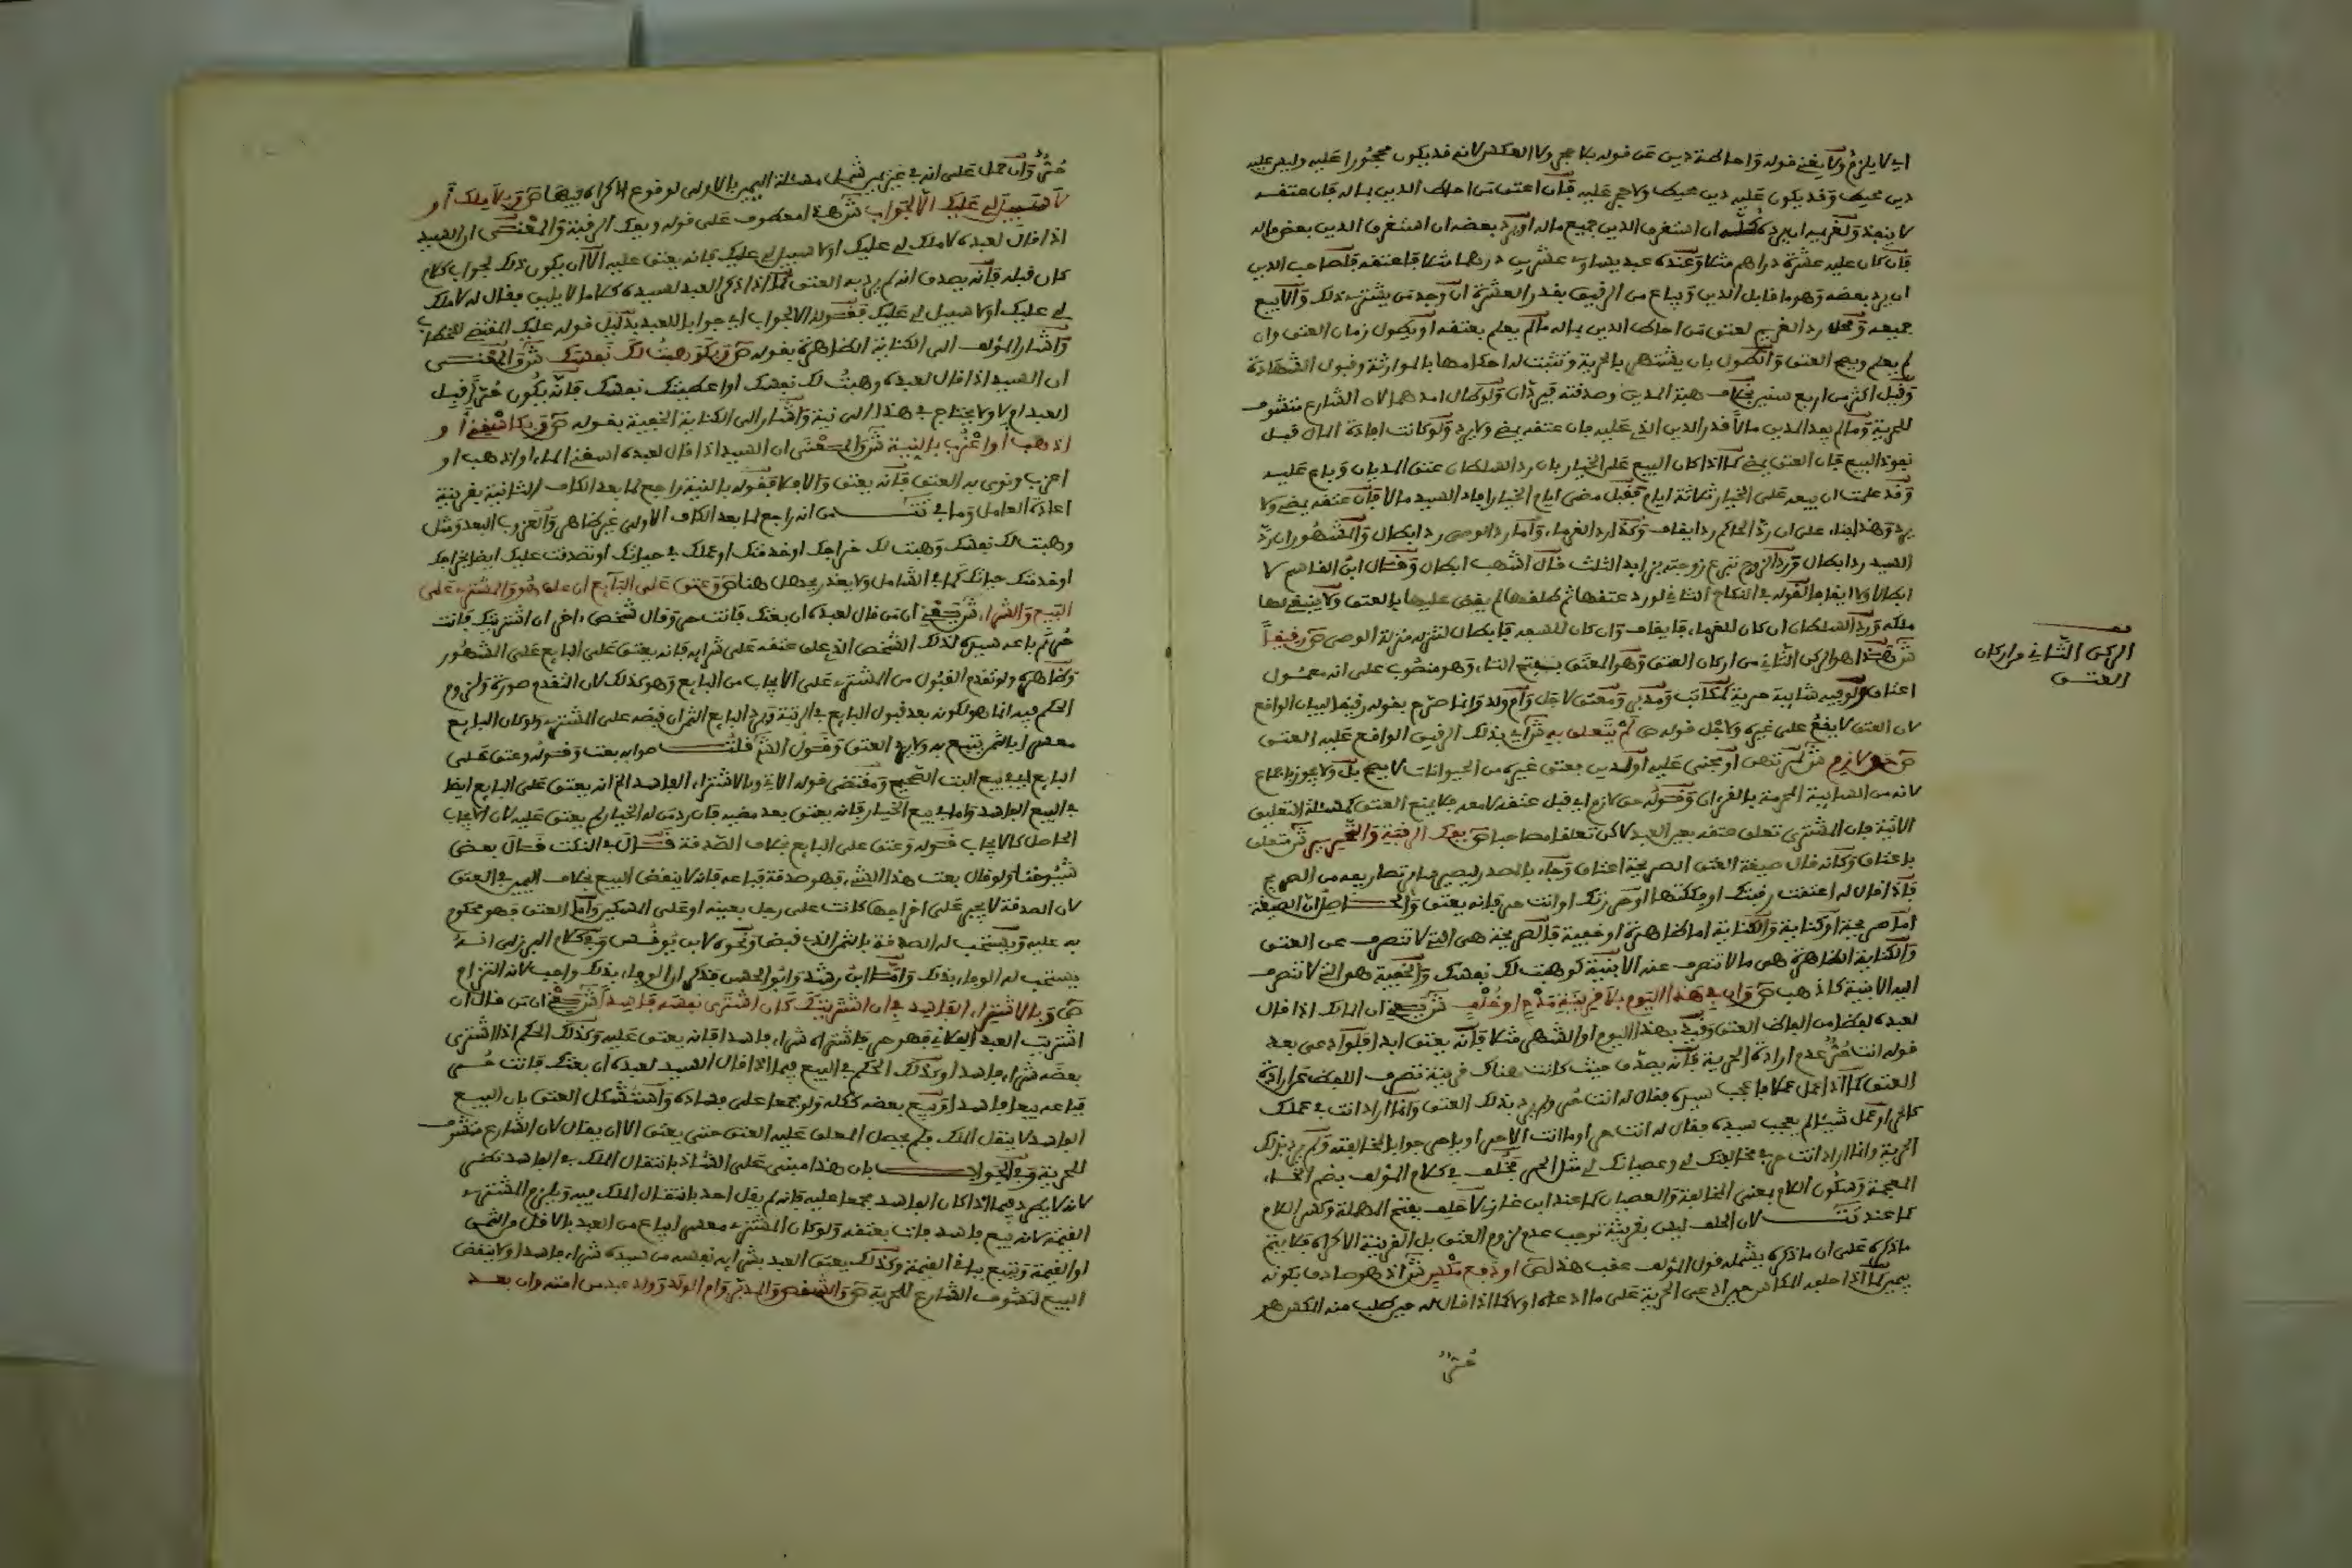 اي لا يلزم ولا يغني قوله واحاطة دين عن قوله بلا حجر ولا العكس لانه قد يكون محجورا عليه وليس عليه
دين محيط وقد يكون عليه دين محيط ولا حجر عليه فان اعتق من احاط الدين بماله فان عتقه
لا ينفذ ولغريمه ان يرده كله ان استغرق الدين جميع ماله او يرد بعضه ان استغرق الدين بعض ماله
فان كان عليه عشرة دراهم مثلا وعنده عبد يساوي عشرين درهما مثلا فاعتقه فلصاحب الدين
ان يرد بعضه وهو ما قابل الدين ويباع من الرقيق بقدر العشرة ان وجد من يشتري ذلك والا بيع
جميعه ومحل رد الغريم لعتق من احاط الدين بماله ما لم يعلم بعتقه او يطول زمان العتق وان
لم يعلم ويبيح العتق والطول بان يشتهر بالحرية وتثبت له احكامها بالموارثة وقبول الشهادة
وقيل اكثر من اربع سنين بخلاف هبة المدين وصدقته فيردان ولو طال امدهما لان الشارع متشوف
للحرية وما لم يفد المدين مالا قدر الدين الذي عليه فان عتقه يمضي ولا يرد ولو كانت افادة المال قبل
نفوذ البيع فان العتق يمضي كما اذا كان البيع على الخيار بان رد السلطان عتق المديان وباع عليه
وقد علمت ان بيعه على الخيار ثلاثة ايام فقبل مضي ايام الخيار افاد السيد مالا فان عتقه يمضي ولا
يرد وهذا بناء على ان رد الحاكم رد ايقاف وكذا رد الغرماء واما رد الوصي رد ابطال والمشهور ان رد
السيد رد ابطال ورد الزوج تبرع زوجته بزايد الثلث قال اشهب ابطال وقال ابن القاسم لا
ابطال ولا ايقاف لقوله في النكاح الثاني لو رد عتقها ثم طلقها لم يقض عليها بالعتق ولا ينبغي لها
ملكه ورد السلطان ان كان للغرماء فايقاف وان كان للسفه فابطال لتنزله منزلة الوصي ص رقيقا
ش هذا هو الركن الثاني من اركان العتق وهو المعتق بفتح التاء وهو منصوب على انه معمول
اعتاق ولو فيه شايبة حرية كمكاتب ومدبر ومعتق لاجل وام ولد وانما صرح بقوله رقيقا لبيان الواقع
لان العتق لا يقع على غيره ولاجل قوله ص لم يتعلق به ش اي بذلك الرقيق الواقع عليه العتق
ص حق لازم ش كمرتهن او مجني عليه او لدين بعتق غيره من الحيوانات لا يصح بل ولا يجوز اجماعا
لانه من السايبة المحرمة بالقرءان وقوله حق لازم اي قبل عتقه لا معه فلا يمنع العتق كمسئلة التعليق
الاتية فان المشتري تعلق حقه بعين العبد لاكن تعلقا مصاحبا ص بفك الرقبة والتحرير ش متعلق
باعتاق وكانه قال صيغة العتق الصريحة اعتاق وجاء بالمصدر ليصير ساير تصاريفه من الصريح
فاذا قال له اعتقت رقبتك او فككتها او حررتك او انت حر فانه يعتق والحاصل ان الصيغة
اما صريحة او كناية والكناية اما ظاهرة او خفية فالصريحة هي التي لا تنصرف عن العتق
والكناية الظاهرة هي ما لا تنصرف عنه الا بنية كوهبت لك نفسك والخفية هي التي لا تنصرف
اليه الا بنية كاذهب ص وان في هذا اليوم بلا قرينة مدح او خلف ش يعني ان المالك اذا قال
لعبده لفظا من الفاظ العتق وقيد بهذا اليوم او الشهر مثلا فانه يعتق ابدا فلو ادعى بعد
قوله انت حر عدم ارادة الحرية فانه يصدق حيث كانت هناك قرينة تصرف اللفظ عن ارادة
العتق كما اذا عمل عملا فاعجب سيده فقال له انت حر ولم يرد بذلك العتق وانما اراد انت في عملك
كالحر او عمل شيئا لم يعجب سيده فقال له انت حر او ما انت الا حر او يا حر جوابا لمخالفته ولم يرد بذلك
الحرية وانما اراد انت حر في مخالفتك لي وعصيانك لي مثل الحر فخلف في كلام المؤلف بضم الخاء
المعجمة وسكون اللام بمعنى المخالفة والعصيان كما عند ابن غازي لا حلف بفتح المهملة وكسر اللام
كما عند تت لان الحلف ليس بقرينة توجب عدم لزوم العتق بل القرينة الاكراه فلا يتم
ما ذكره على ان ما ذكره يشمله قول المؤلف عقب هذا ص او دفع مكس ش اذ هو صادق بكونه
بيمين كما اذا حلفه المكاس حين ادعى الحرية على ما ادعاه او لا كما اذا قال له حين طلب منه المكس هو
حر
الركن الثاني من اركان
العتق
حر وان حمل على انه في غير يمين شمل مسئلة اليمين بالاولى لوقوع الاكراه فيها ص وبلا ملك او
لا سبيل لي عليك الا لجواب ش هذا معطوف على قوله وبفك الرقبة والمعنى ان السيد
اذا قال لعبده لا ملك لي عليك او لا سبيل لي عليك فانه يعتق عليه الا ان يكون ذلك لجواب كلام
كان قبله فانه يصدق انه لم يرد به العتق كما اذا ذكر العبد لسيده كلاما لا يليق فقال له لا ملك
لي عليك او لا سبيل لي عليك فقوله الا لجواب اي جوابا للعبد بدليل قوله عليك المقتضي للخطاب
واشار المؤلف الى الكناية الظاهرة بقوله ص وبكوهبت لك نفسك ش والمعنى
ان السيد اذا قال لعبده وهبت لك نفسك او اعطيتك نفسك فانه يكون حرا قبل
العبد او لا ولا يحتاج في هذا الى نية واشار الى الكناية الخفية بقوله ص وبكاسقني او
اذهب او اعزب بالنية ش والمعنى ان السيد اذا قال لعبده اسقني الماء او اذهب او
اعزب ونوى به العتق فانه يعتق والا فلا فقوله بالنية راجع لما بعد الكاف الثانية بقرينة
اعادة العامل وما في تت من انه راجع لما بعد الكاف الاولى غير ظاهر والعزوب البعد ومثل
وهبت لك نفسك وهبت لك خراجك او خدمتك او عملك في حياتك او تصدقت عليك ايضا بخراجك
او خدمتك حياتك كما في الشامل ولا يعذر بجهل هنا ص وعتق على البايع ان علق هو والمشتري على
البيع والشراء ش يعني ان من قال لعبده ان بعتك فانت حر وقال شخص ءاخر ان اشتريتك فانت
حر ثم باعه سيده لذلك الشخص الذي علق عتقه على شرايه فانه يعتق على البايع على المشهور
وظاهره ولو تقدم القبول من المشتري على الايجاب من البايع وهو كذلك لان التقدم صورة ولزوم
الحكم فيه انما هو لكونه بعد قبول البايع في الرقبة ويرد البايع الثمن ان قبضه على المشتري ولو كان البايع
معسرا بالثمن يتبع به ولا يرد العتق وقول الشم قلت صوابه بعت وقوله وعتق على
البايع اي في بيع البت الصحيح ومقتضى قوله الاتي وبالاشتراء الفاسد الخ انه يعتق على البايع ايضا
في البيع الفاسد واما في بيع الخيار فانه يعتق بعد مضيه فان رد من له الخيار لم يعتق عليه لان الايجاب
الحاصل كلا ايجاب قوله وعتق على البايع بخلاف الصدقة قال في النكت قال بعض
شيوخنا ولو قال بعت هذا الشيء فهو صدقة فباعه فانه لا ينقض البيع بخلاف اليمين في العتق
لان الصدقة لا يجبر على اخراجها كانت على رجل بعينه او على المساكين واما العتق فهو محكوم
به عليه ويستحب له الصدقة بالثمن الذي قبض ونحوه لابن يونس وفي كلام البرزلي انه
يستحب له الوفاء بذلك واما ابن رشد وابو الحسن فذكرا ان الوفاء بذلك واجب لانه التزام
ص وبالاشتراء الفاسد في ان اشتريتك كان اشترى نفسه فاسدا ش يعني ان من قال ان
اشتريت العبد الفلاني فهو حر فاشتراه شراء فاسدا فانه يعتق عليه وكذلك الحكم اذا اشترى
بعضه شراء فاسدا وكذلك الحكم في البيع فيما اذا قال السيد لعبده ان بعتك فانت حر
فباعه بيعا فاسدا وبيع بعضه ككله ولو مجمعا على فساده واستشكل العتق بان البيع
الفاسد لا ينقل الملك فلم يحصل المعلق عليه العتق حتى يعتق الا ان يقال لان الشارع متشوف
للحرية وفي الجواب بان هذا مبني على الشاذ بانتقال الملك في الفاسد نظر
لانه لا يطرد فيما اذا كان الفاسد مجمعا عليه فانه لم يقل احد بانتقال الملك فيه ويلزم المشتري
القيمة لانه بيع فاسد فات بعتقه ولو كان المشتري معسرا بيع من العبد بالاقل من الثمن
او القيمة ويتبع بباقي القيمة وكذلك يعتق العبد بشرايه نفسه من سيده شراء فاسدا ولا ينقض
البيع لتشوف الشارع للحرية ص والشقص والمدبر وام الولد وولد عبده من امته وان بعد